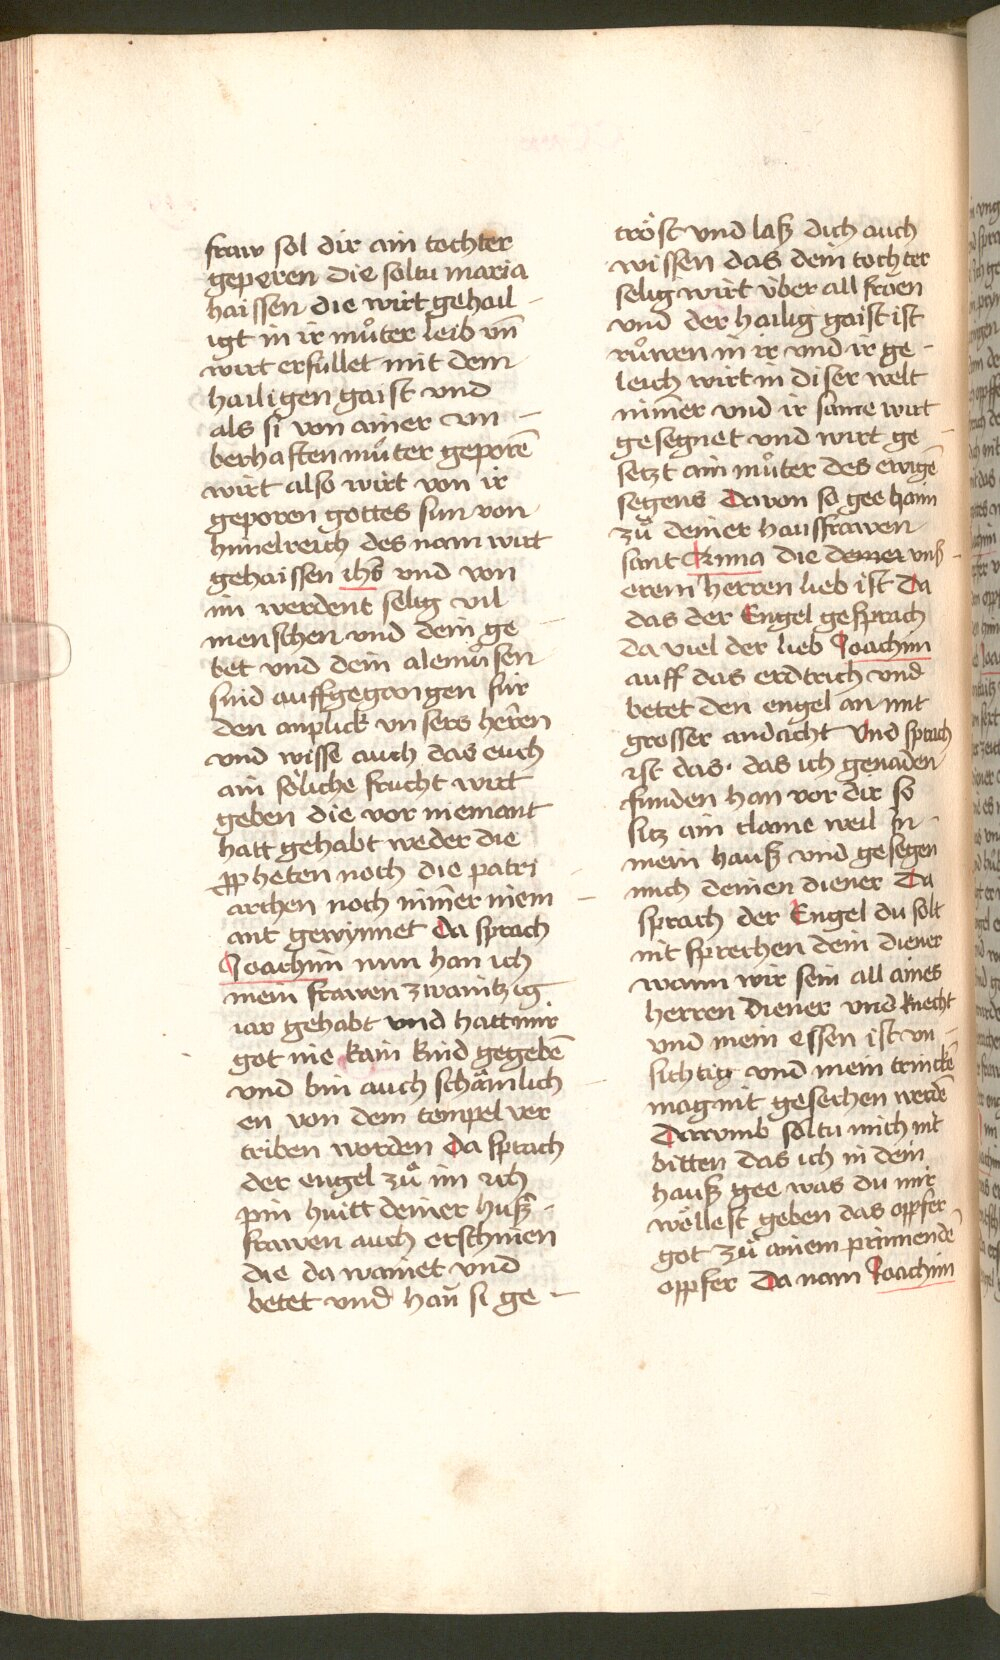 fraw sol dir ain tochter
geperen die soltu maria
haissen die wirt gehail -
igt in ir muͦter leib vn̄
wirt erfullet mit dem
hailigen gaist vnd
als si von ainer vn -
berhaften muͦter geporē
wirt also wirt von ir
geporen gottes sun von
himelreich des nam wirt
gehaissen ihs̄ vnd von
im werdent selig vil
menschen vnd dein ge -
bet vnd dein alemuͦsen
sind auffgegangen fur
den anplick vnsers herren
vnd wisse auch das euch
ain soͤliche frucht wirt
geben die vor niemant
hatt gehabt weder die
ppheten noch die patri -
archen noch nim̄er niem -
ant gewynnet Da sprach
Joachim nun han ich
mein frawen zwaintzig
iar gehabt vnd hatt mir
got nie kain kind gegebē
vnd bin auch schaͤmlich -
en von dem tempel ver
triben worden Da sprach
der engel zuͦ im ich
pin huitt deiner huß -
frawen auch erschinen
die da wainet vnd
betet vnd han̄ si ge -
troͤst vnd laß dich auch
wissen das dein tochter
selig wirt über all froen
vnd der hailig gaist ist
ruͦwen in ir vnd ir ge -
leich wirt in diser welt
nim̄er vnd ir same wirt
gesegnet vnd wirt ge -
setzt ain muͦter des ewigē
segens Davon so gee haim
zuͦ deiner haussfrawen
sant Anna die demer vnß -
erem herren lieb ist Da
das der Engel gesprach
da viel der lieb Joachim
auff das erdtrich vnd
betet den engel an mit
grosser andacht Vnd sprach
ist das das ich genaden
funden han vor dir so
sitz ain claine weil in
mein hauß vnd gesegen
mich deinen diener Da
sprach der Engel du solt
nit sprechen dein diener
wann wir sein all aines
herren diener vnd knecht
vnd mein essen ist vn -
sichtig vnd mein trinckē
mag nit gesechen werdē
Darumb soltu mich nit
bitten das ich in dein
hauß gee was du mir
woͤllest geben das opffer
got zuͦ ainem prinnendē
oppfer Da nam Joachim